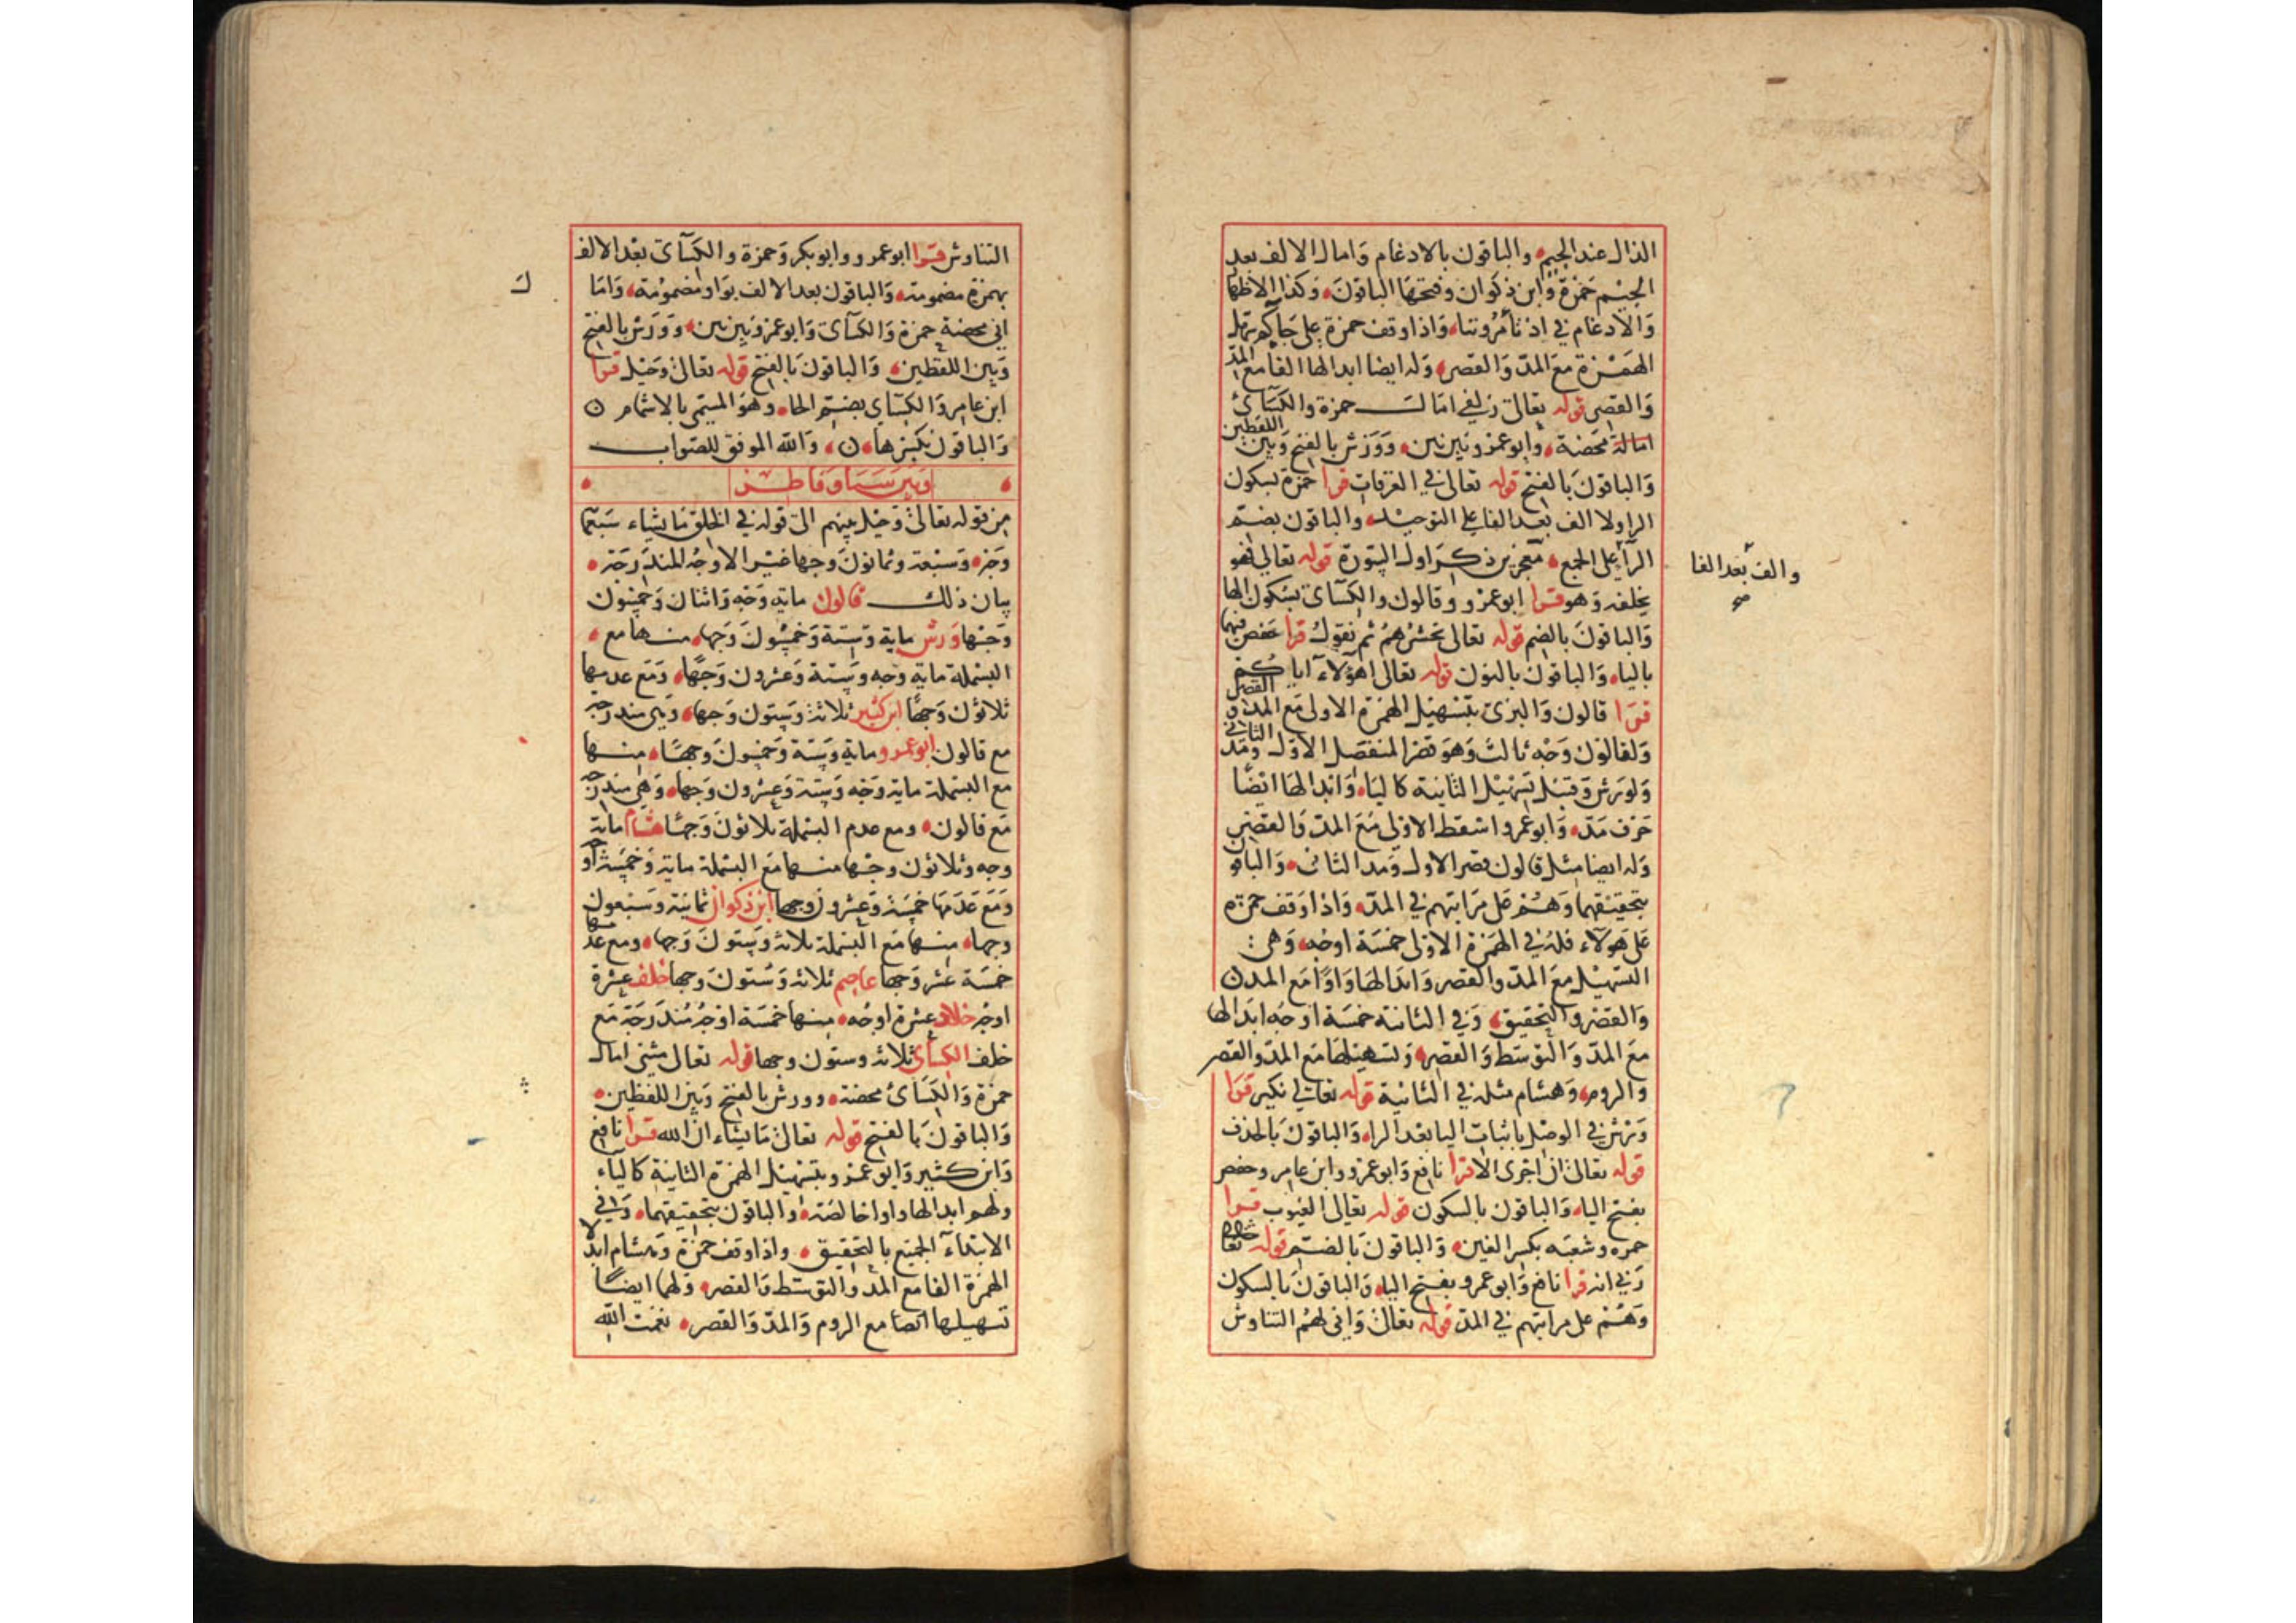 الذال عند الجيم والباقون بالادغام وامال الالف بعد
الجيم حمزة وابن ذكوان وفتحها الباقون وكذا الاظهار
والادغام في اذ تأمروننا واذا وقف حمزة على جآكم سهل
الهمزة مع المد والقصر وله ايضا ابدالها الفا مع المد
والقصر قوله تعالى زلفى امالـــ حمزة والكسآئ
امالة محضة وابو عمرو بين بين وورش بالفتح وبين اللفظين
والباقون بالفتح قوله تعالى في الغرفات قرا حمزة بسكون
الرا ولا الف بعد الفا على التوحيد والباقون بضم
الرآ على الجمع معجزين ذكر اول السورة قوله تعالى فهو
والف بعد الفا
صح
يخلفه وهو قرا ابو عمرو وقالون والكسآى بسكون الها
والباقون بالضم قوله تعالى نحشرهم ثم نقول قرا حفص فيهما
باليا والباقون بالنون قوله تعالى اهؤلآء اياكم
قرا قالون والبزى بتسهيل الهمزة الاولى مع المد و القصر
ولقالون وجه ثالث وهو قصر المنفصل الاول ومد الثاني
ولورش وقنبل تسهيل الثانية كاليا وابدالها ايضا
حرف مد وابو عمرو اسقط الاولى مع المد والقصر
وله ايضا مثل قالون قصر الاول ومد الثانى والباقو
بتحقيقهما وهم على مراتبهم في المد واذا وقف حمزة
على هولآء فله في الهمزة الاولى خمسة اوجه وهى :
التسهيل مع المد والقصر وابدالها واوا مع المد
والقصر والتحقيق وفي الثانية خمسة اوجه ابدالها
مع المد والتوسط والقصر وتسهيلها مع المد والقصر
والروم وهشام مثله في الثانية قوله تعالى نكير قرا
ورش في الوصل باثبات اليا بعد الرا والباقون بالحذف
قوله تعالى ان اجرى الا قرا نافع وابو عمرو وابن عامر وحفص
بفتح اليا والباقون بالسكون قوله تعالى الغيوب قرا
حمزه وشعبه بكسر الغين والباقون بالضم قوله تعا
ربي انه قرا نافع وابو عمرو بفتح اليا والباقون بالسكون
وهم على مراتبهم في المد قوله تعالى وانى لهم التناوش
التناوش قرا ابو عمرو وابو بكر وحمزة والكسآى بعد الالف
بهمزة مضمومة والباقون بعد الالف بواو مضمومة واما
انى محضة حمزة والكسآى وابو عمرو بين بين وورش بالفتح
وبين اللفظين والباقون بالفتح قوله تعالى وحيل قرا
ابن عامر والكسآي بضم الحا وهو المسمى بالاشمام ن
والباقون بكسرها ن والله الموفق للصواب
وبين سبا وفاطر
من قوله تعالى وحيل بينهم الى قوله في الخلق ما يشاء سبعما
وجه وسبعة وثمانون وجها غير الاوجه المندرجة
بيان ذلك قالون ماية وجه واثنان وخمسون
وجها ورش ماية وستة وخمسون وجها منها مع
البسملة ماية وجه وستة وعشرون وجها ومع عدمها
ثلاثون وجها ابن كثير ثلاثة وستون وجها وهى مندرجة
مع قالون ابو عمرو ماية وستة وخمسون وجها منها
مع البسملة ماية وجه وستة وعشرون وجها وهى مندرجة
مع قالون ومع عدم البسملة ثلاثون وجها هشام ماية
وجه وثلاثون وجها منها مع البسملة ماية وخمسة اوجه
ومع عدمها خمسة وعشرون وجها ابن ذكوان ثمانية وسبعون
وجها منها مع البسملة ثلاثة وستون وجها ومع عدمها
خمسة عشر وجها عاصم ثلاثة وستون وجها خلف عشرة
اوجه خلاد عشرة اوجه منها خمسة اوجه مندرجة مع
خلف الكسآى ثلاثة وستون وجها قوله تعالى مثنى امال
حمزة والكسآئ محضة وورش بالفتح وبين اللفظين
والباقون بالفتح قوله تعالى ما يشاء ان الله قرا نافع
وابن كثير وابو عمرو بتسهيل الهمزة الثانية كالياء
ولهم ابدالها واوا خالصة والباقون بتحقيقهما وفي
الابتدآء الجميع بالتحقيق واذا وقف حمزة وهشام ابدلا
الهمزة الفا مع المد والتوسط والقصر ولهما ايضا
تسهيلها ايضا مع الروم والمد والقصر نعمت الله